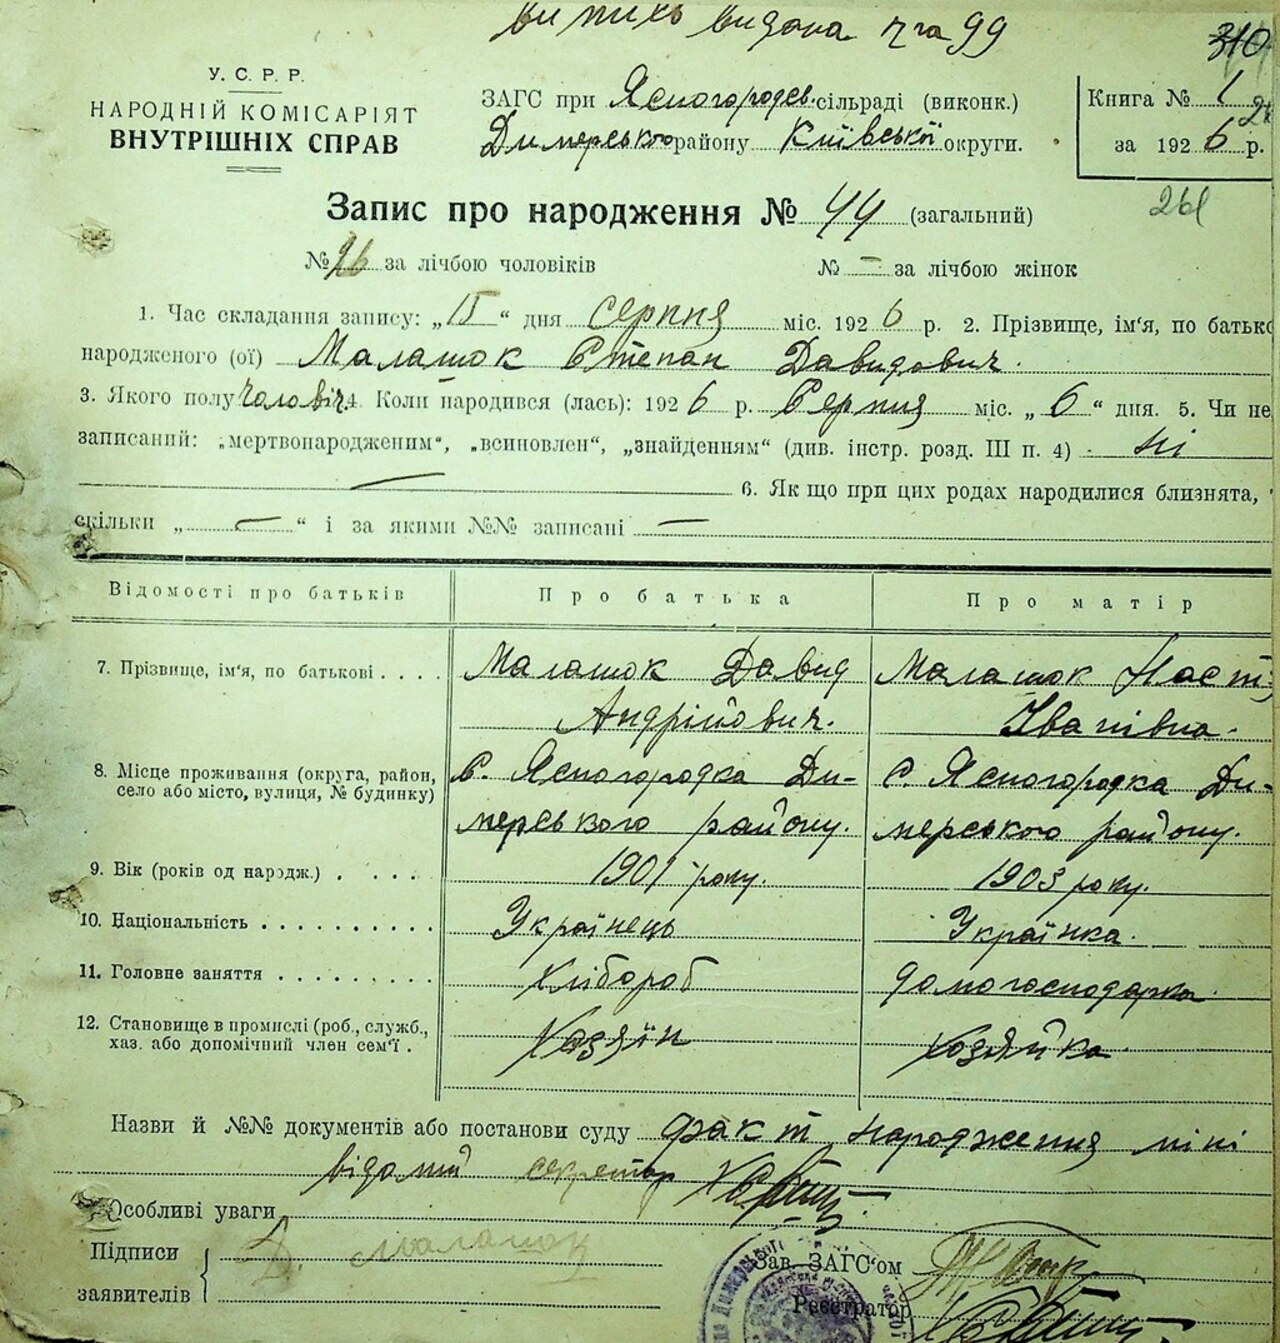 випись видана 7га 99
310
У. С. Р. Р.
НАРОДНІЙ КОМІСАРІЯТ
ВНУТРІШНІХ СПРАВ
ЗАГС при Ясногородськ. сільраді (виконк.)
Димерського району Київської округи.
Книга № 1
за 1926 р.
Запис про народження № 44 (загальний)
261
№ 26 за лічбою чоловіків № – за лічбою жінок
1. Час складання запису: „15“ дня Серпня міс. 1926 р. 2. Прізвище, ім‘я, по батько
народженого (ої) Малашок Степан Давидович.
3. Якого полу чоловіч. 4. Коли народився (лась): 1926 р. Серпня міс. „6“ дня. 5. Чи не
записаний: „мертвонародженим“, „всиновлен“, „знайденням“ (див. інстр. розд. III п. 4) ні
— 6. Як що при цих родах народилися близнята,
скільки „—“ і за якими №№ записані —
Відомості про батьків Про батька Про матір
7. Прізвище, ім‘я, по батькові . . . . Малашок Давид Малашок Наст
Андрійович. Іванівна.
8. Місце проживання (округа, район, с. Ясногородка Ди- с. Ясногородка Ди-
село або місто, вулиця, № будинку) мерського району. мерського району.
9. Вік (років од народж.) . . . . 1901 року. 1903 року.
10. Національність . . . . . . . . . . Українець Українка.
11. Головне заняття . . . . . . . . Хлібороб домогосподарка
12. Становище в промислі (роб., служб., Хазяїн Хозяйка
хаз. або допомічний член сем‘ї .
Назви й №№ документів або постанови суду факт народження міні
відомий секретар
Особливі уваги
Підписи Д. Малашок
заявителів
Зав. ЗАГС‘ом
Реєстратор